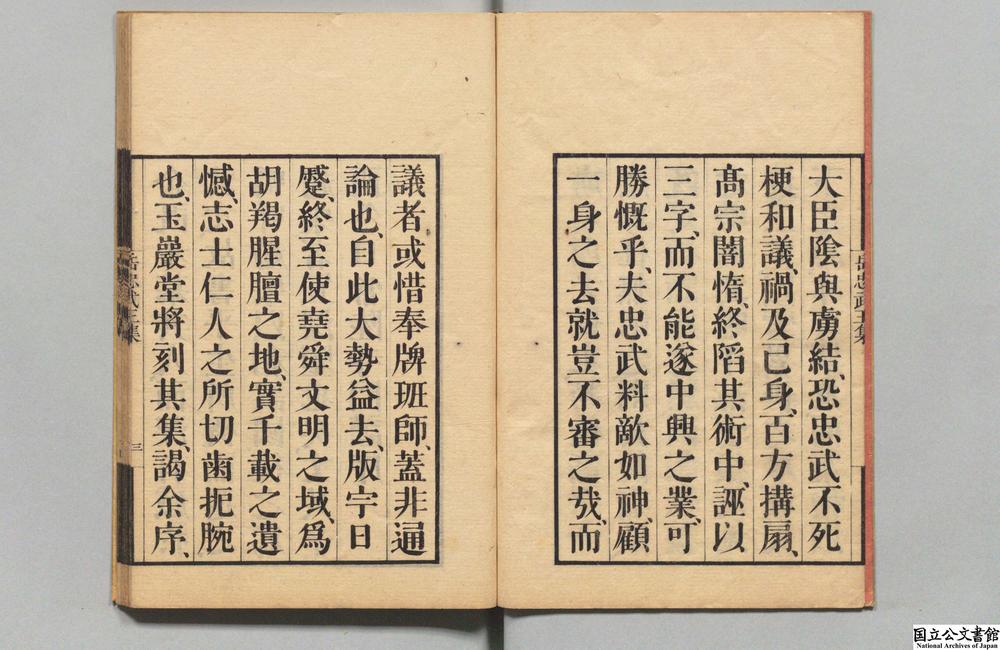 大臣陰與虜結、恐忠武不死
梗和議、禍及己身、百方搆扇、
髙宗闇惰、終䧟其術中、誣以
三字、而不能遂中興之業、可
勝慨乎、夫忠武料敵如神、顧
一身之去就豈不審之哉、而
議者或惜奉牌班師、蓋非通
論也、自此大勢益去、版宇日
蹙、終至使堯舜文明之域、爲
胡羯腥膻之地、實千載之遺
憾、志士仁人之所切齒扼腕
也、玉巖堂將刻其集、謁余序、
岳忠武王集
三
国立公文書館
National Archives of Japan